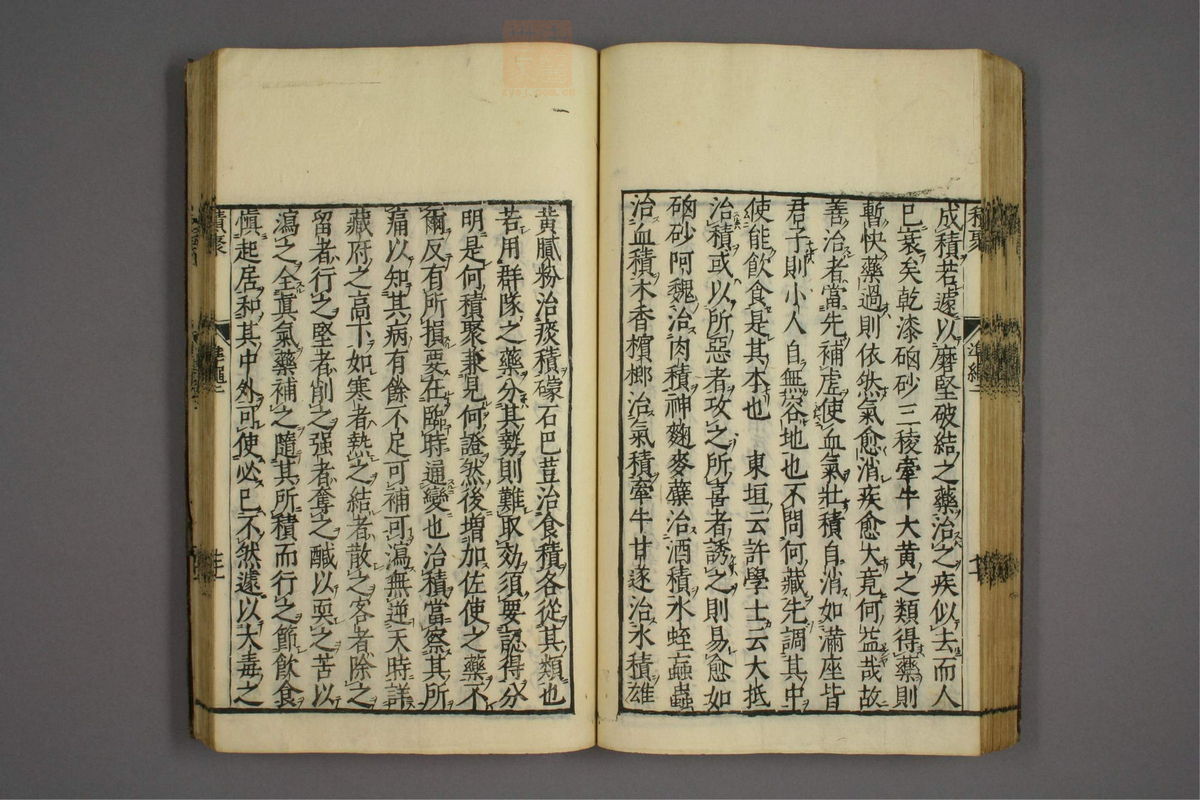 成積若遽以磨堅破結之藥治之疾似去而人
已衰矣乾漆硇砂三稜牽牛大黄之類得藥則
暫快藥過則依然氣愈消疾愈大竟何益哉故
善治者當先補虛使血氣壯積自消如滿座皆
君子則小人自無容地也不問何藏先調其中
使能飲食是其本也　東垣云許學士云大抵
治積或以所惡者攻之所喜者誘之則易愈如
硇砂阿魏治肉積神麴麥蘖治酒積水蛭蝱蟲
治血積木香檳榔治氣積牽牛甘遂治水積雄
黄膩粉治痰積礞石巴荳治食積各從其類也
若用群隊之藥分其勢則難取効須要認得分
明是何積聚兼見何證然後増加佐使之藥不
爾反有所損要在臨時通變也治積當察其所
痛以知其病有餘不足可補可瀉無逆天時詳
藏府之高下如寒者熱之結者散之客者除之
留者行之堅者削之强者奪之鹹以耎之苦以
瀉之全眞氣藥補之隨其所積而行之節飲食
愼起居和其中外可使必已不然遽以大毒之
積聚
準繩二